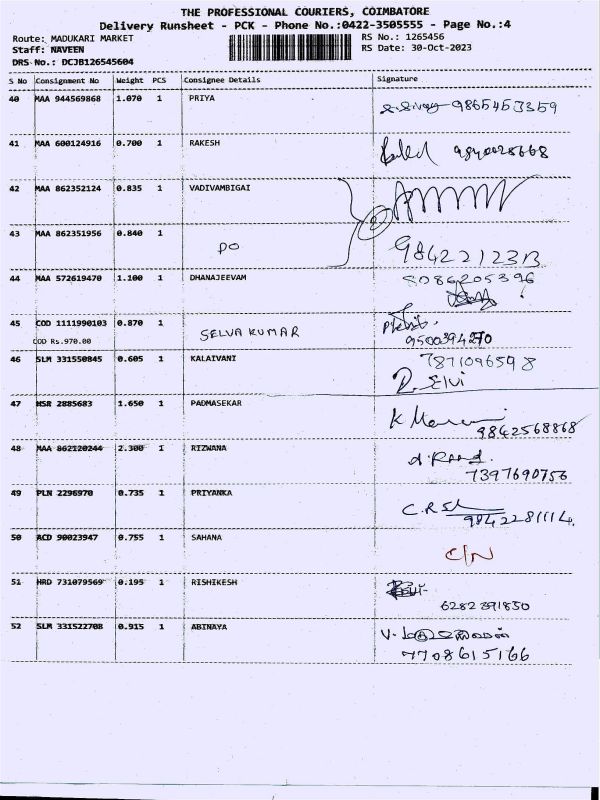 THE PROFESSIONAL COURIERS, COIMBATORE
Delivery Runsheet - PCK - Phone No.:0422-3505555 - Page No.:4
Route: MADUKARI MARKET RS No.: 1265456
Staff: NAVEEN RS Date: 30-Oct-2023
DRS No.: DCJB126545604
S No Consignment No Weight PCS Consignee Details Signature
40 MAA 944569868 1.070 1 PRIYA 9865453359
41 MAA 600124916 0.700 1 RAKESH 9840028668
42 MAA 862352124 0.835 1 VADIVAMBIGAI
43 MAA 862351956 0.840 1 DO
44 MAA 572619470 1.100 1 DHANAJEEVAM 8086205396
45 COD 1111990103 0.870 1 SELVA KUMAR
COD Rs.970.00 9500394270
46 SLM 331550845 0.605 1 KALAIVANI 7871096598
D. Elvi
47 MSR 2885683 1.650 1 PADMASEKAR
9842568868
48 MAA 862120244 2.300 1 RIZWANA
7397690756
49 PLN 2296970 0.735 1 PRIYANKA
50 ACD 90023947 0.755 1 SAHANA C/N
51 HRD 731079569 0.195 1 RISHIKESH
6282391850
52 SLM 331522708 0.915 1 ABINAYA
7708615166